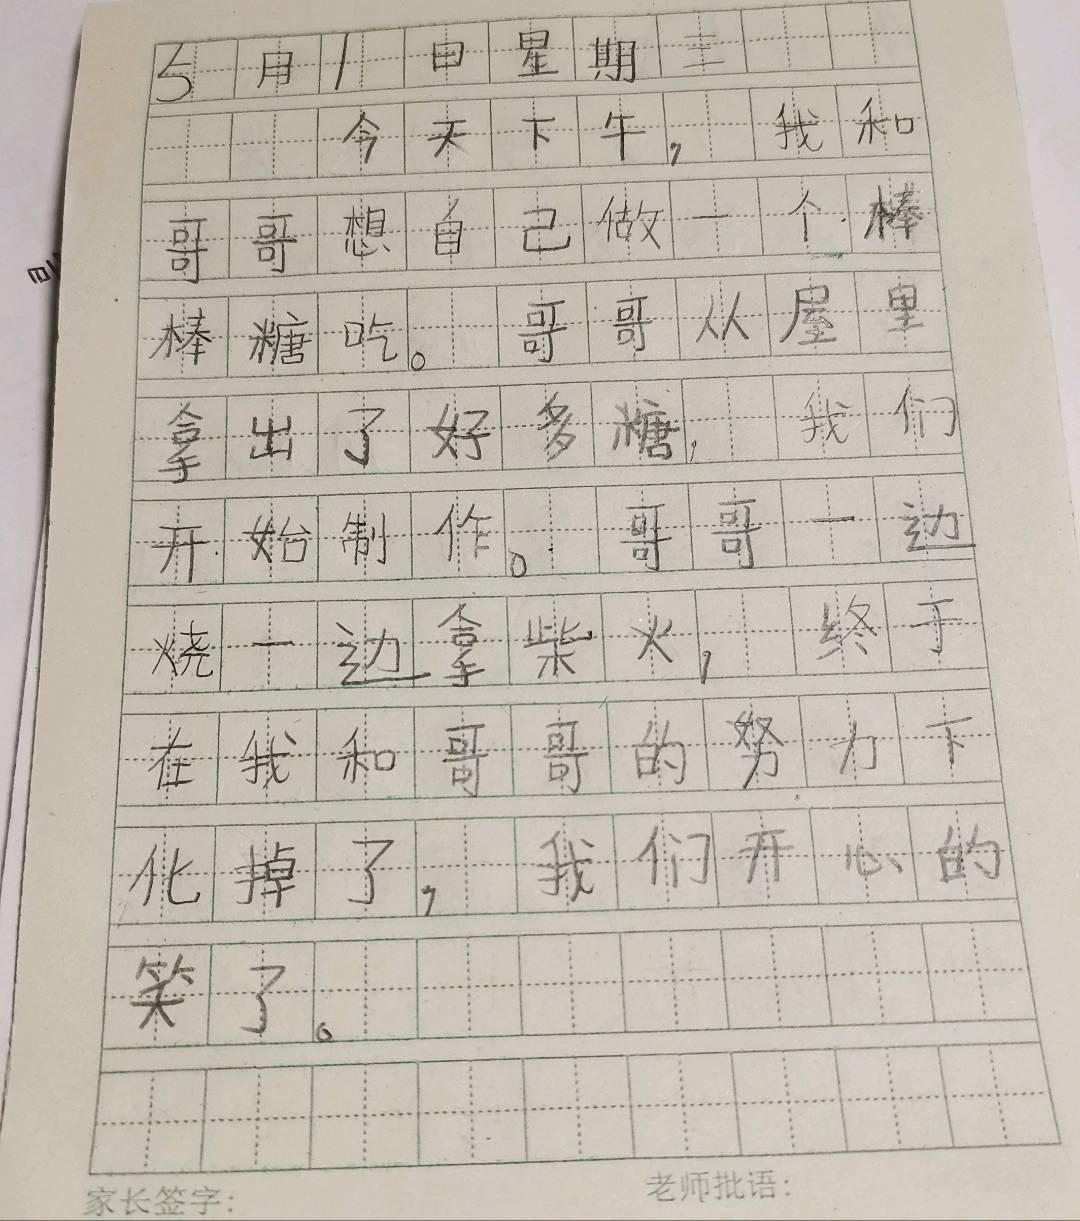 5月1日星期三
今天下午，我和
哥哥想自己做一个棒
棒糖吃。哥哥从屋里
拿出了好多糖，我们
开始制作。哥哥一边
烧一边拿柴火，终于
在我和哥哥的努力下
化掉了，我们开心的
笑了。
家长签字：
老师批语：